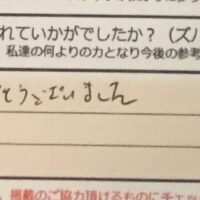 れていかがでしたか？（ズバ
私達の何よりの力となり今後の参考
とうございました
掲載のご協力頂けるものにチェッ